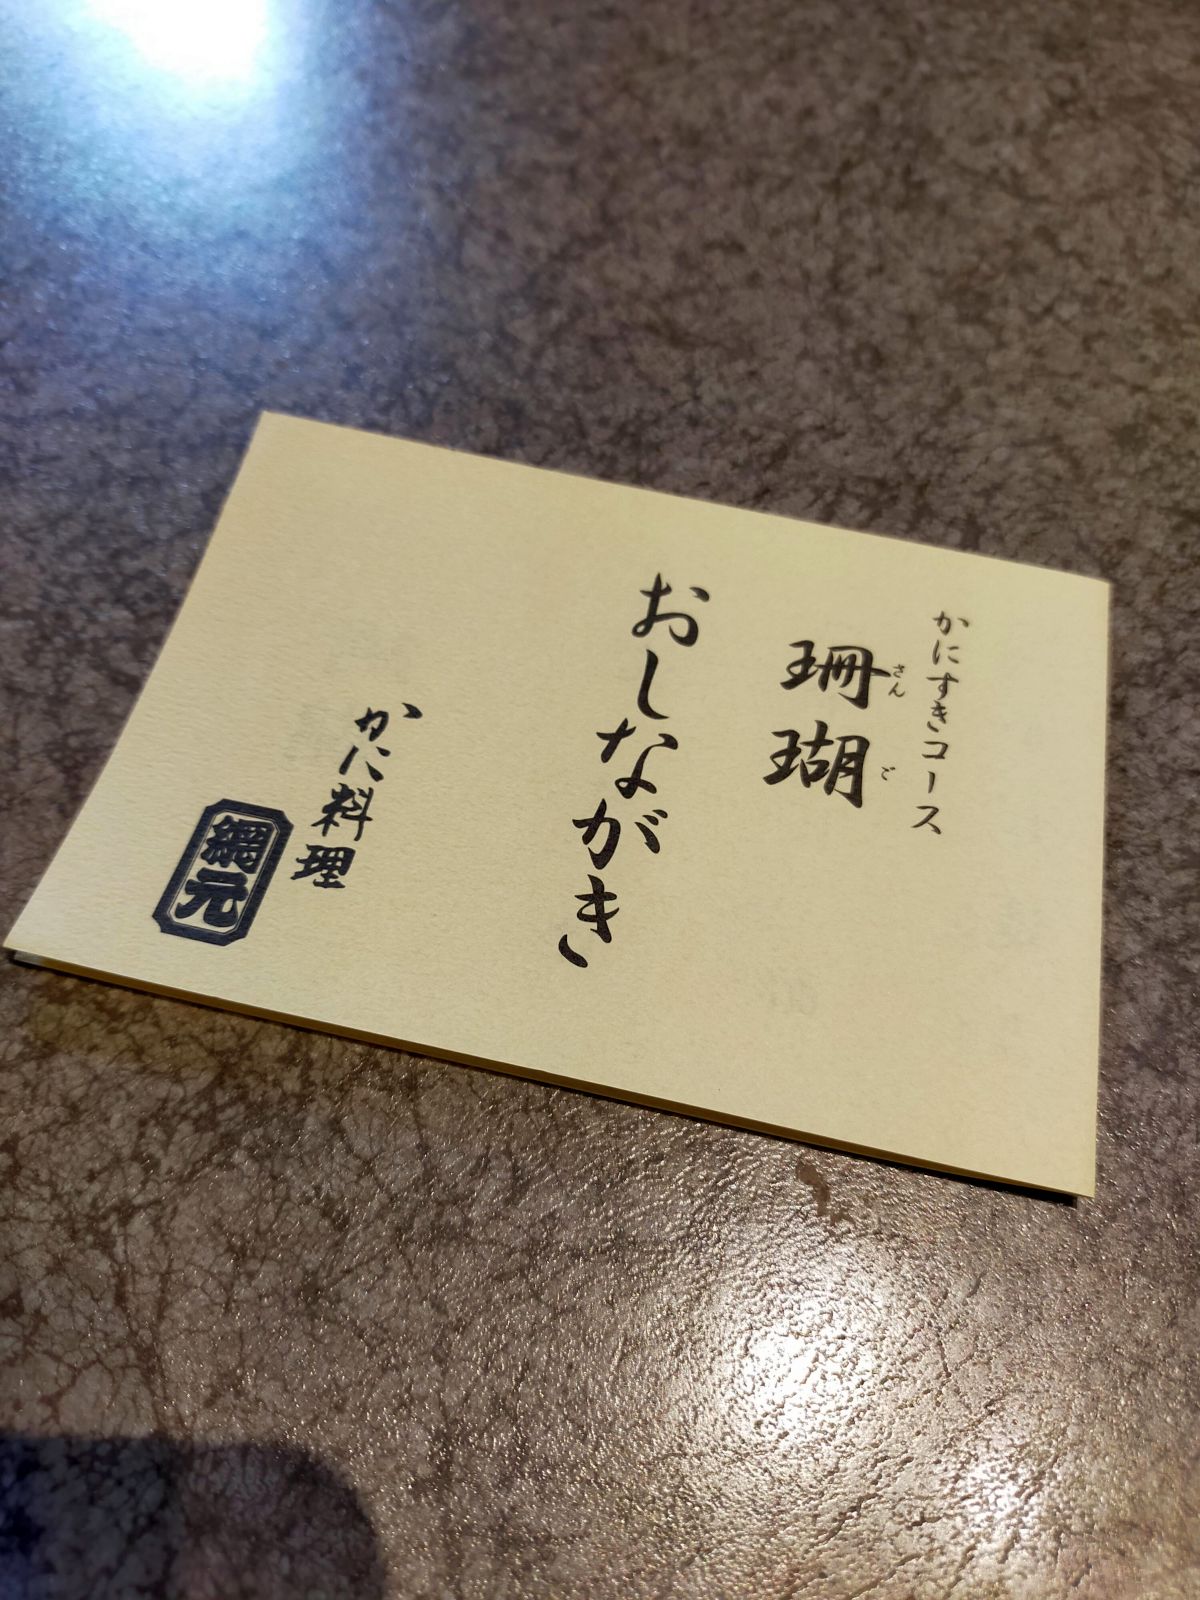 かにすきコース
珊瑚
さんご
おしながき
かに料理
網元